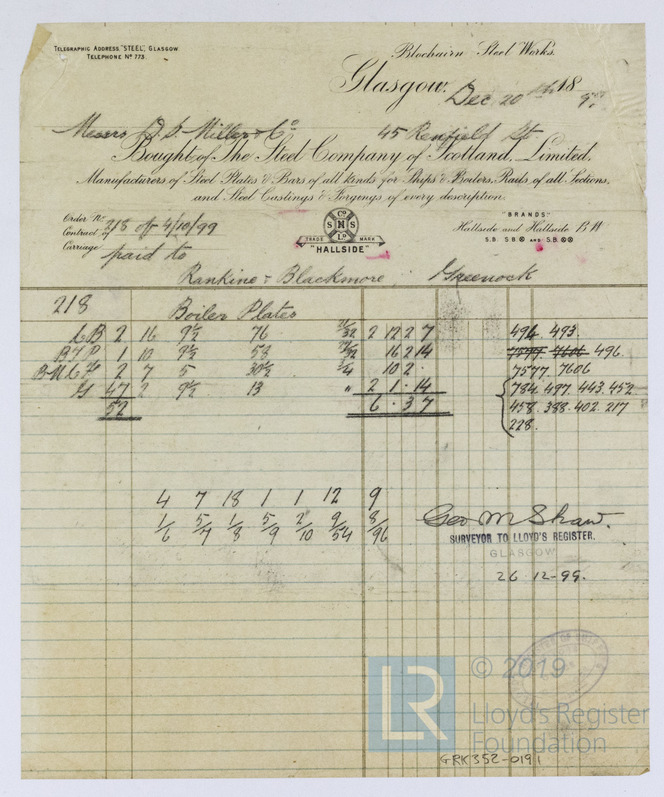 TELEGRAPHIC ADDRESS, "STEEL", GLASGOW.
TELEPHONE No 773.
Blochairn Steel Works.
Glasgow, Dec 20th 1899
Messrs D. S. Miller & Co 45 Renfield St
Bought of The Steel Company of Scotland, Limited,
Manufacturers of Steel Plates & Bars of all kinds for Ships & Boilers, Rails of all Sections,
and Steel Castings & Forgings of every description.
Order No 218 of 4/10/99
Contract of
Carriage paid to
Co S N S Ld
TRADE MARK
"HALLSIDE"
"BRANDS"
Hallside and Hallside B W
S.B. S.B ⊗ AND S.B. ⊗⊗
Rankine & Blackmore, Greenock
218 Boiler Plates
2 16 9½ 76 2 12 2 7 494 493
1 10 9½ 58 16 2 14 7577 7606 496
2 7 5 30½ 10 2 7577 7606
47 2 9½ 13 " 2 1 . 14 784. 497. 443. 452
52 6 . 3 7 458. 388. 402. 217
228.
4 7 18 1 1 12 9
1/6 5/7 1/8 5/9 2/10 9/54 8/96
Geo M Shaw.
SURVEYOR TO LLOYD'S REGISTER.
GLASGOW
26 12-99.
LR © 2019
Lloyd's Register
Foundation
GRK352-0191